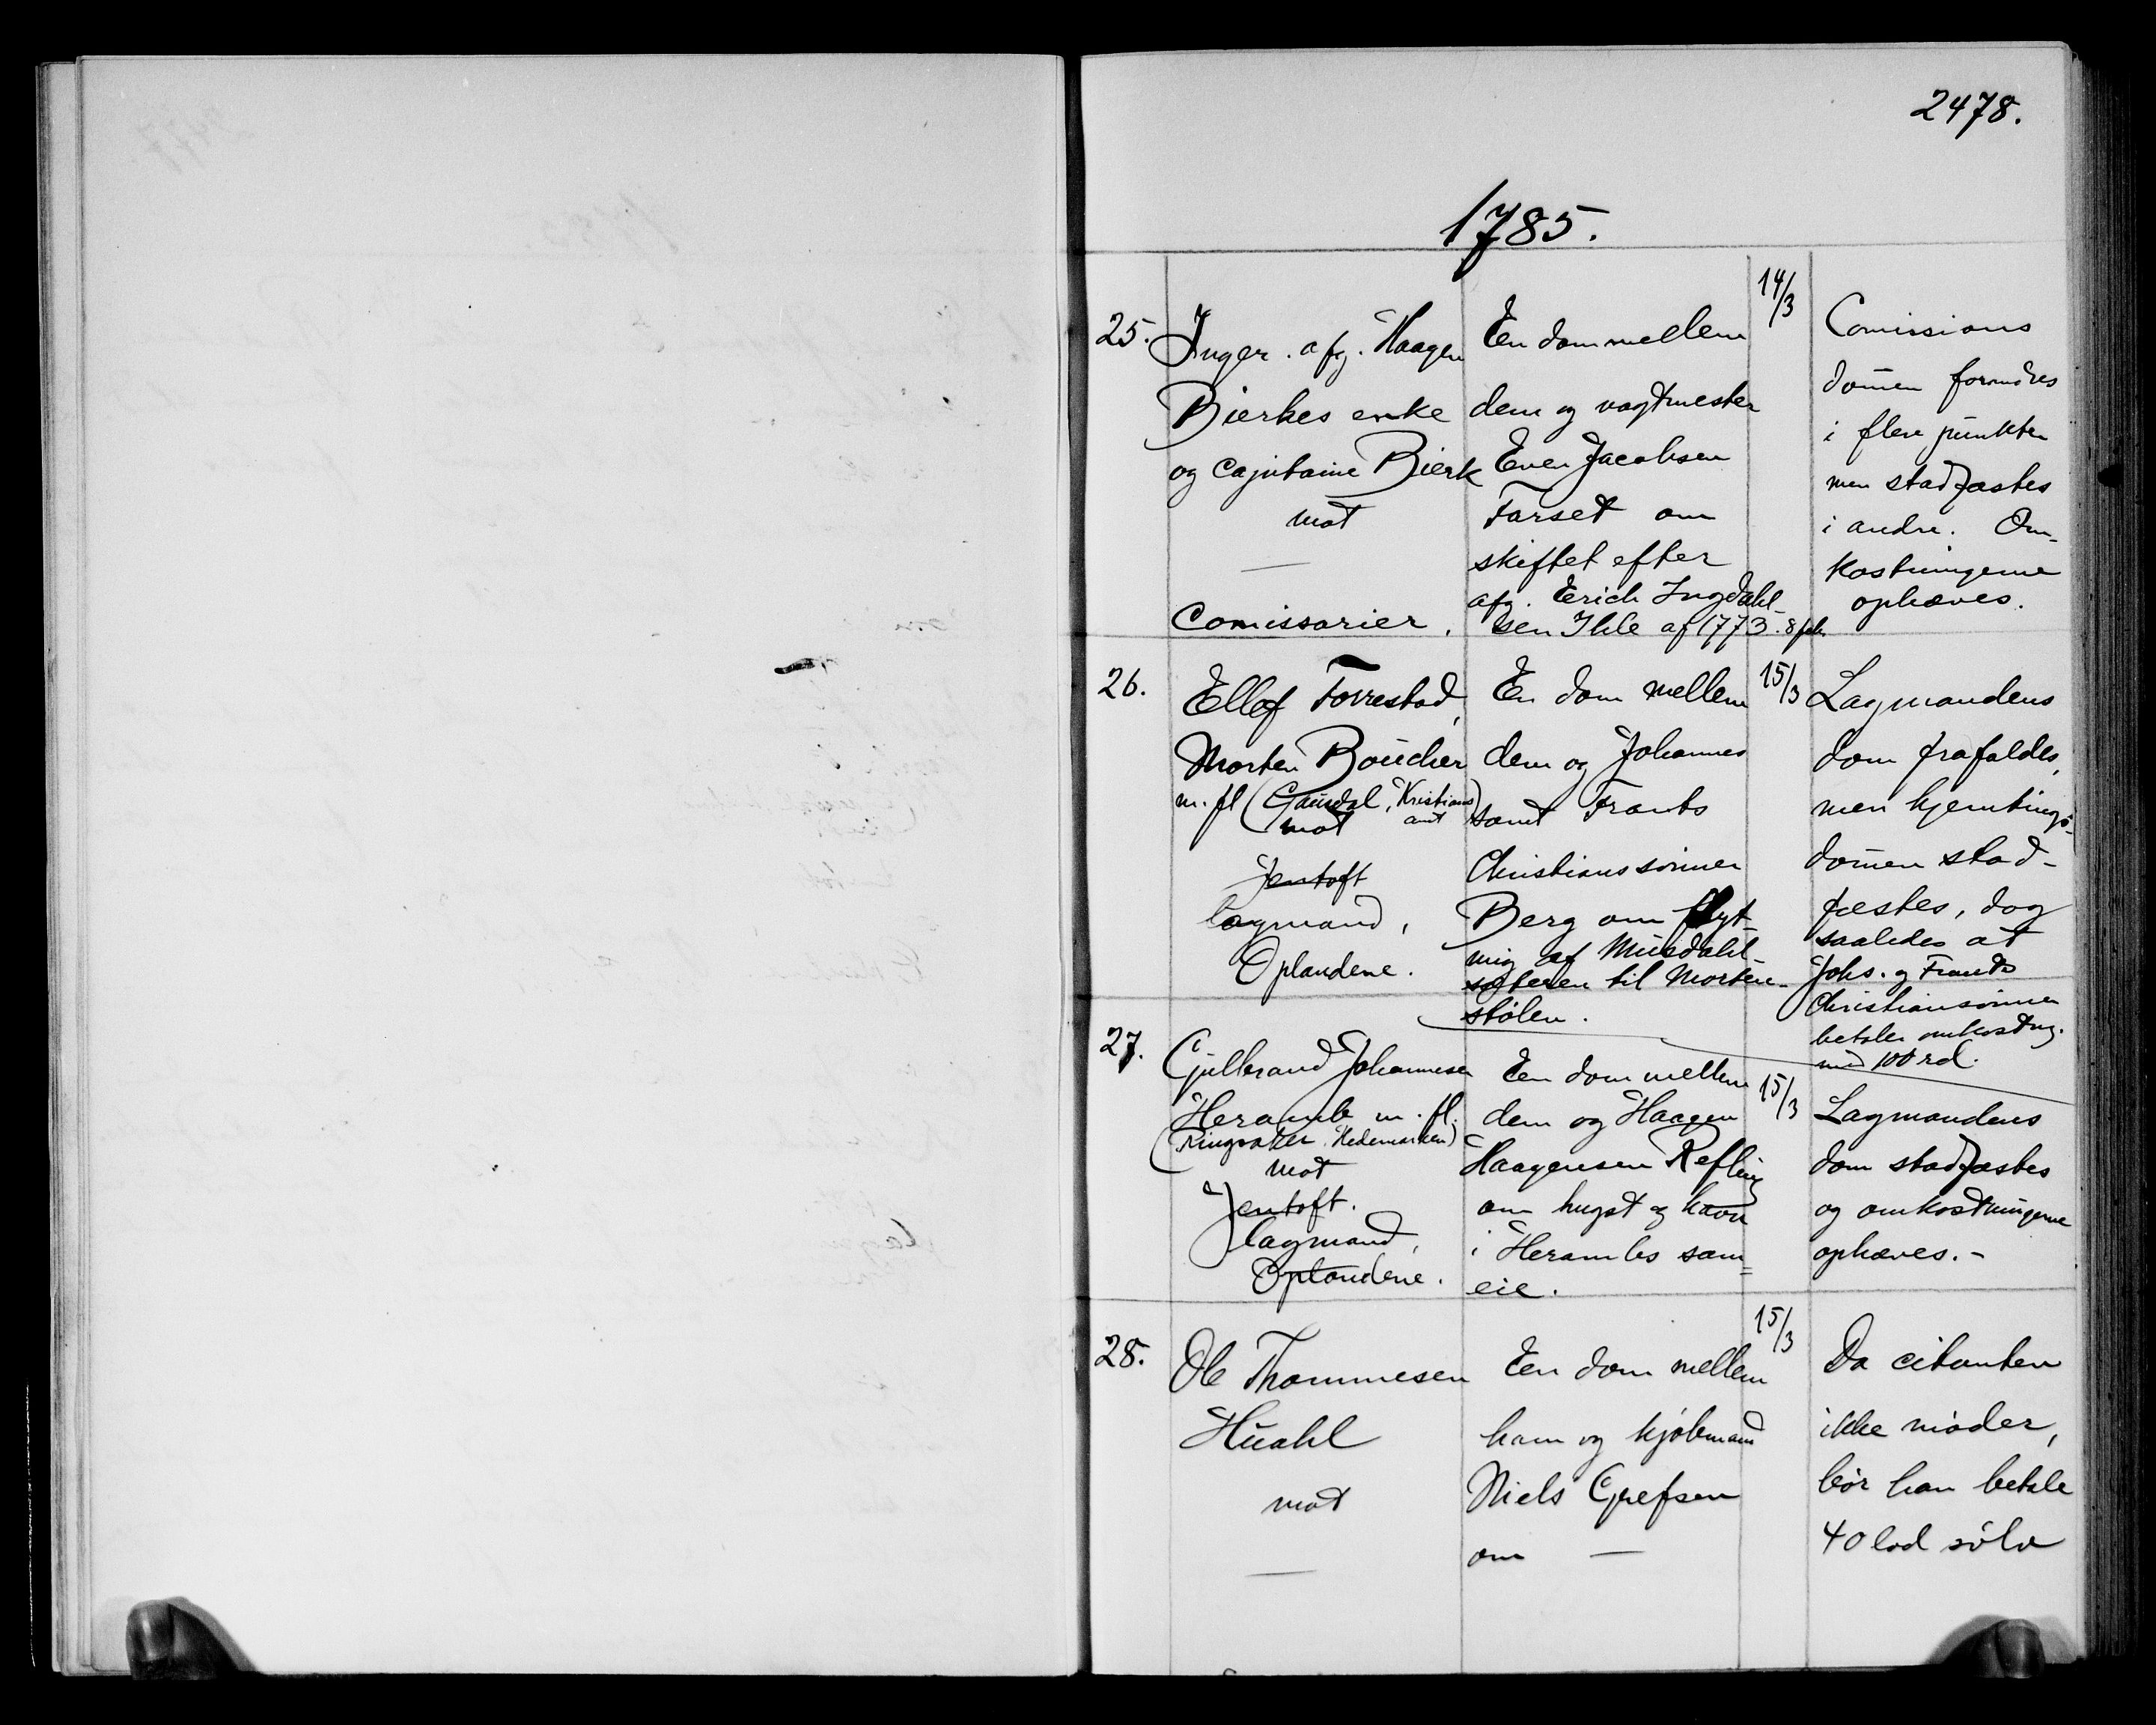 2478.
1785.
25.
Inger. afg. Haagen
Bierkes enke
og Capitaine Bierk
mot
—
Comissarier.
En dom mellem
dem og vagtmester
Even Jacobsen
Farset om
skiftet efter
afg. Erich Ingdahl-
sen Ihle af 1773. 8 feb.
14/3
Comissions
domen forandres
i flere punkter
men stadfæstes
i andre. Om-
kostningerne
ophæves.
26.
Ellef Forrestad,
Morten Boucher
m. fl (Gausdal, Kristians
amt)
mot
Jentoft
lagmand,
Oplandene.
En dom mellem
dem og Johannes
samt Frants
Christianssönner
Berg om flyt-
ning af Musdahl-
sæteren til Morten-
stölen.
15/3
Lagmandens
dom frafaldes,
men hjemtings-
domen stad-
fæstes, dog
saaledes at
Johs. og Frants
Christiansönner
betaler omkostng.
med 100 rd.
27.
Gulbrand Johannesen
Heramb m. fl.
(Ringsaker, Hedemarken)
mot
Jentoft.
lagmand,
Oplandene.
En dom mellem
dem og Haagen
Haagensen Refling
om hugst og havn
i Herambs sam=
eie.
15/3
Lagmandens
dom stadfæstes
og omkostningerne
ophæves.-
28.
Ole Thommesen
Huahl
mot
—
En dom mellem
ham og kjöbmand
Niels Grefsen
om —
15/3
Da citanten
ikke möder,
bör han betale
40 lod sölv